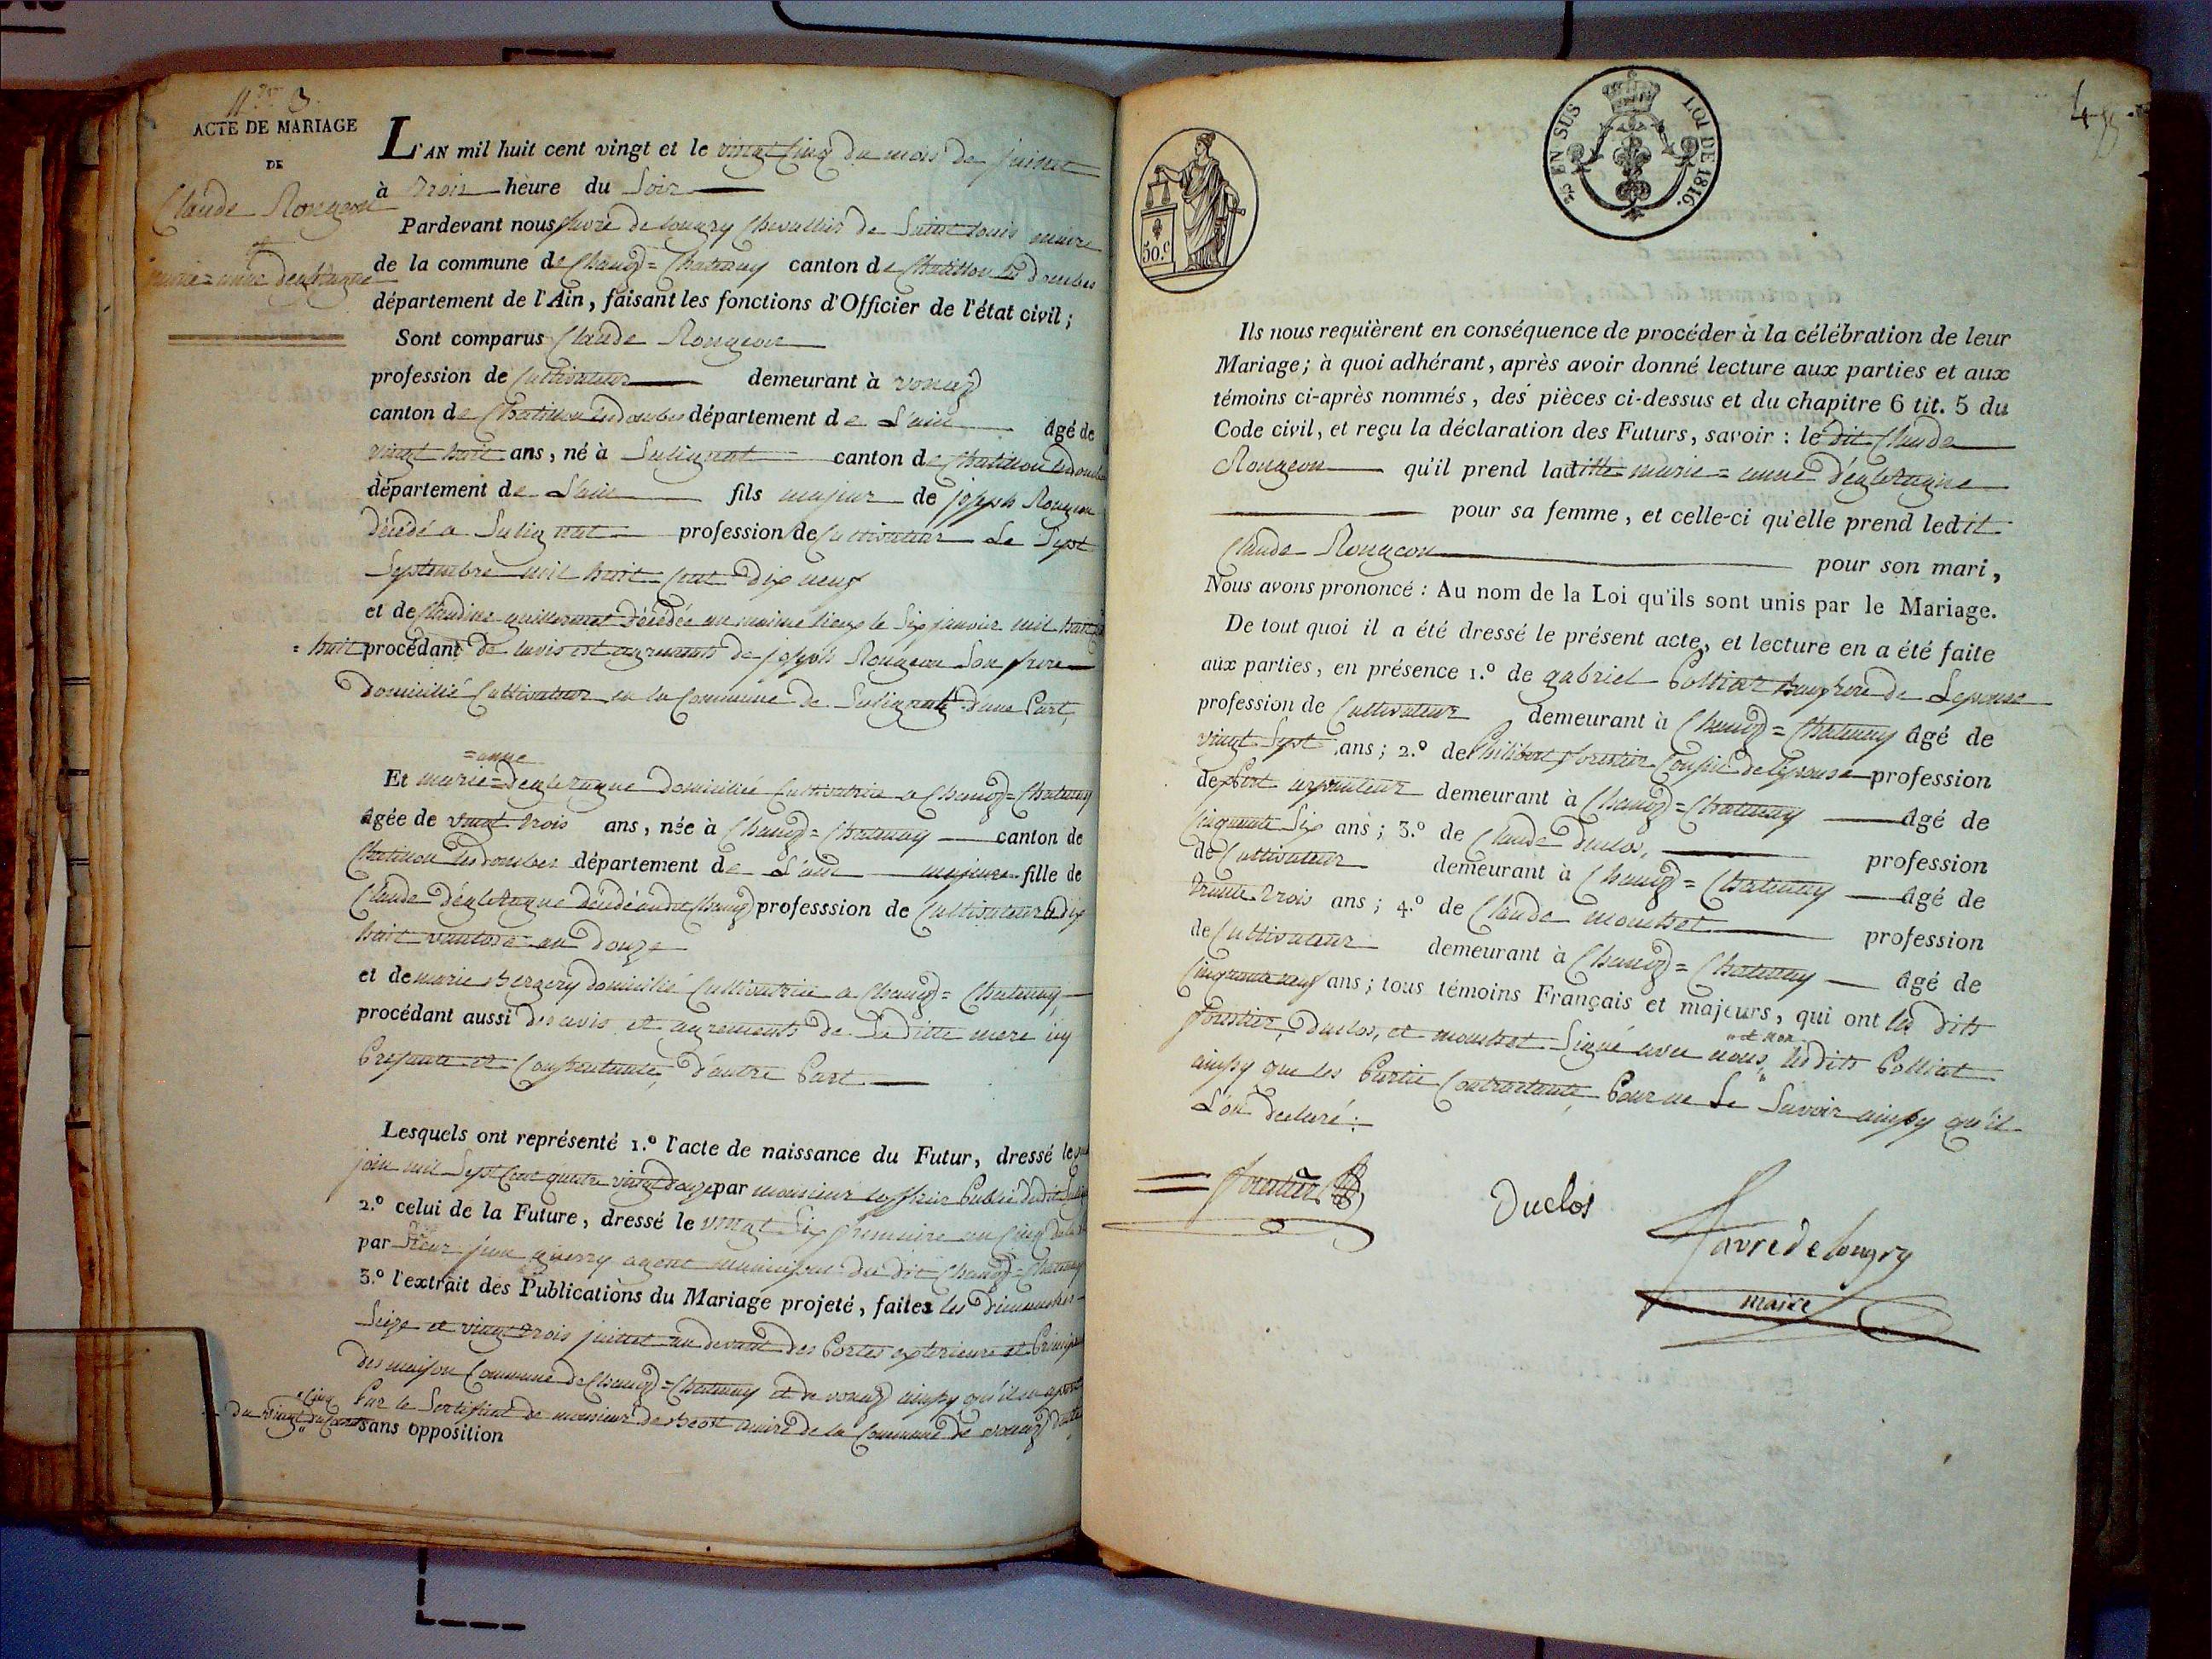 N.º 3.
ACTE DE MARIAGE
DE
Claude Rongeon
et
marie=anne deglétagne
L'AN mil huit cent vingt et le vingt cinq du mois de juillet
à trois heure du Soir
Pardevant nous favre de longry Chevallier de Saint Louis maire
de la commune de Chanoz=Chatenay canton de Chatillon les dombes
département de l'Ain, faisant les fonctions d'Officier de l'état civil;
Sont comparus Claude Rongeon
profession de Cultivateur demeurant à vonnaz
canton de Chatillon les dombes département de L'ain âgé de
vingt huit ans, né à Sulignat canton de Chatillon les dombes
département de L'ain fils majeur de joseph Rongeon
décédé a Sulignat profession de Cultivateur Le Sept
Septembre mil huit Cent dix neuf
et de Claudine décédée au même lieux le Six janvier mil huit
= huit procédant de lavis et agréments de joseph Rongeon Son frere
domicilié Cultivateur en la Commune de Sulignat d'une Part,
=anne
Et marie=deglétagne domiciliée Cultivatrice a Chanoz=Chatenay
âgée de vingt trois ans, née à Chanoz=Chatenay canton de
Chatillon les dombes département de L'ain majeure fille de
Claude déglétagne décédé audit Chanoz professsion de Cultivateur le dix
huit vantose an douze
et de marie Bergery domicilié Cultivatrice a Chanoz=Chatenay,
procédant aussi des avis et agrements de Laditte mere icy
Presente et Consentente, d'autre Part
Lesquels ont représenté 1.º l'acte de naissance du Futur, dressé le
juin mil Sept Cent quatre vingt douze par monsieur lofficier Public dudit
2.º celui de la Future, dressé le vingt Six frimaire an Cinq
par Sieur jean guerry agent municipal du dit Chanoz=Chatenay
3.º l'extrait des Publications du Mariage projeté, faites les dimanches
Seize et vingt trois juillet au devant des Portes exterieure et
des maison Commune de Chanoz=Chatenay et de vonnaz ainsy qu'il en apert
Par le Sertificat de monsieur de Beost maire de la Commune de vonnaz
Cinq
du vingt du Courant sans opposition
¼ EN SUS LOI DE 1816.
50.c
Ils nous requièrent en conséquence de procéder à la célébration de leur
Mariage; à quoi adhérant, après avoir donné lecture aux parties et aux
témoins ci-après nommés, des pièces ci-dessus et du chapitre 6 tit. 5 du
Code civil, et reçu la déclaration des Futurs, savoir : le dit Claude
Rongeon qu'il prend laditte marie=anne déglétagne
pour sa femme, et celle-ci qu'elle prend ledit
Claude Rongeon pour son mari,
Nous avons prononcé : Au nom de la Loi qu'ils sont unis par le Mariage.
De tout quoi il a été dressé le présent acte, et lecture en a été faite
aux parties, en présence 1.º de gabriel Polliat beaufrere de Lepouse
profession de Cultivateur demeurant à Chanoz=Chatenay âgé de
vingt Sept ans; 2.º de Philibert forestier Cousin de lepouse profession
de arpenteur demeurant à Chanoz=Chatenay âgé de
Cinquante Six ans; 3.º de Claude duclos, profession
de Cultivateur demeurant à Chanoz=Chatenay âgé de
trente trois ans; 4.º de Claude monterat profession
de Cultivateur demeurant à Chanoz=Chatenay âgé de
Cinquante neuf ans; tous témoins Français et majeurs, qui ont les dits
forestier, duclos, et Signé avec nous, et non les dits Polliat
ainsy que les Partie Contractante Pour ne Le Savoir ainsy qu'il
L'on declaré.
forestier
Duclos
favre de longry
maire